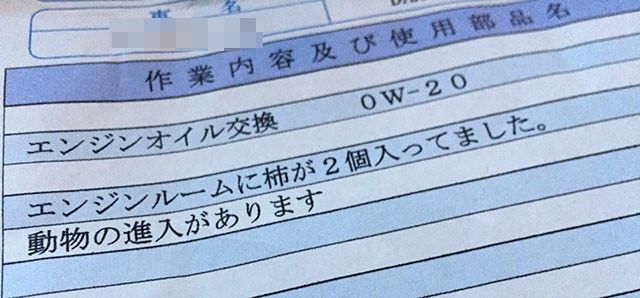 車名
作業内容及び使用部品名
エンジンオイル交換 0W-20
エンジンルームに柿が2個入ってました。
動物の進入があります